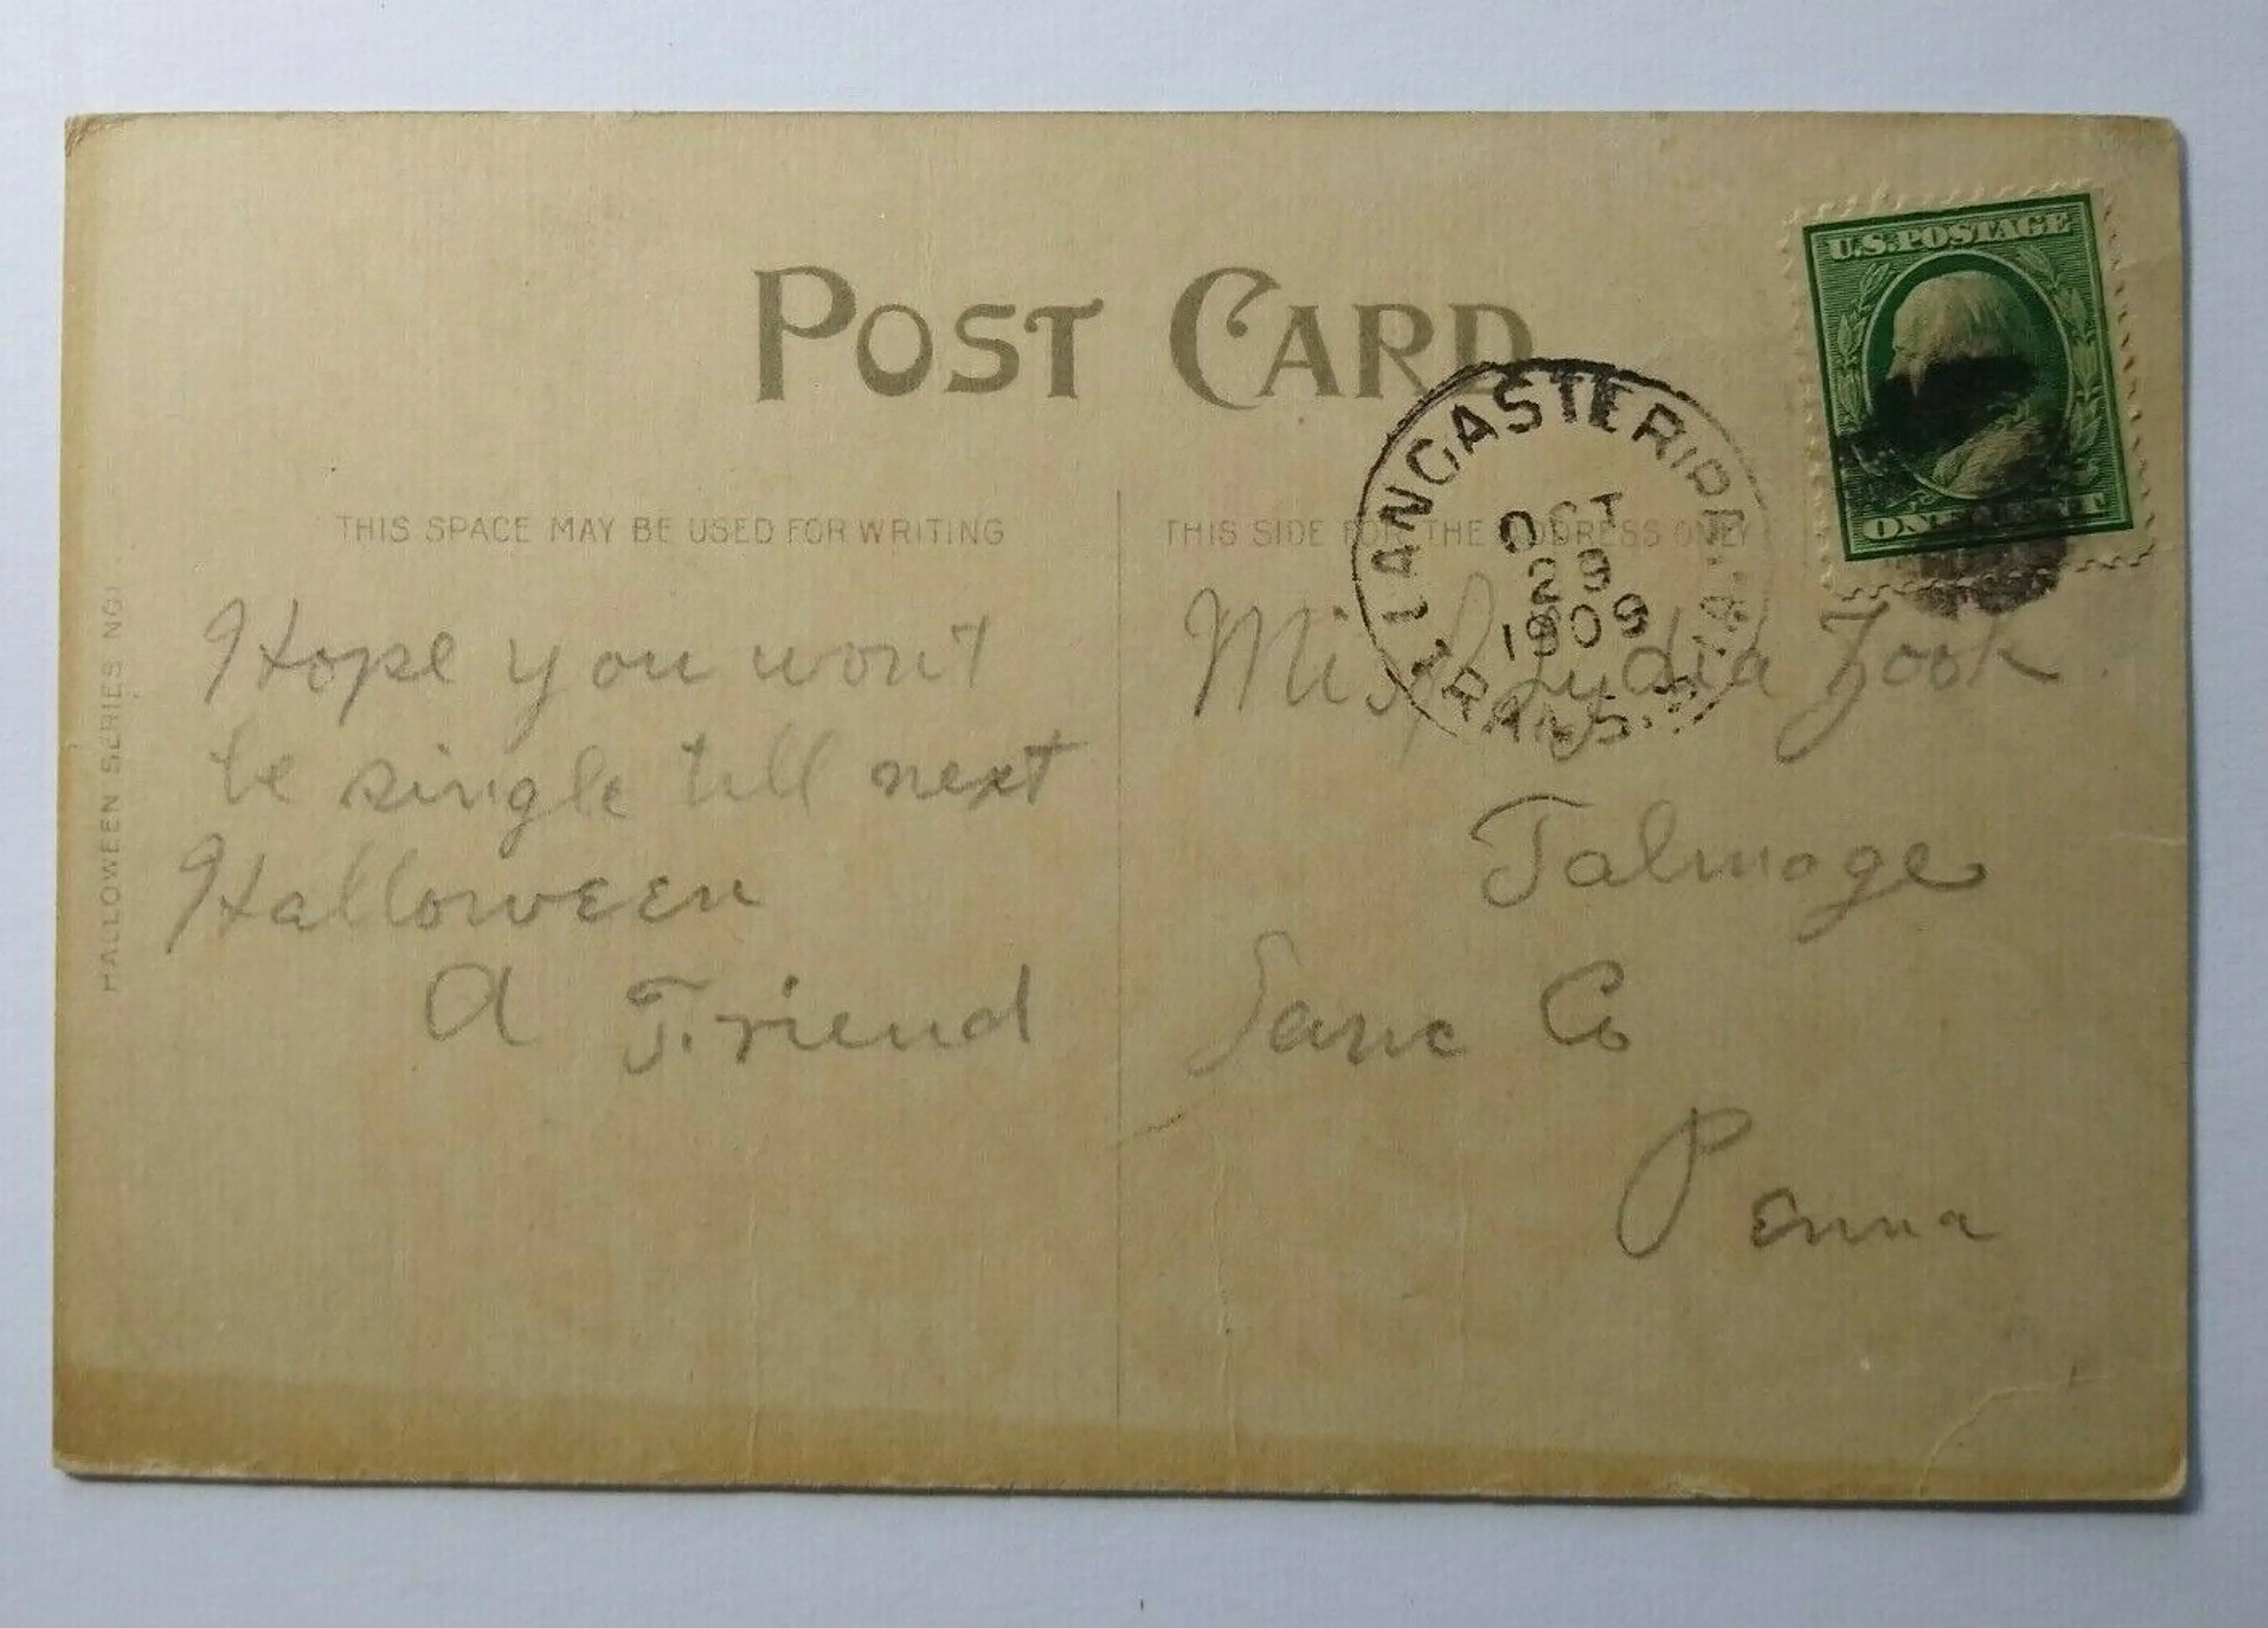 POST CARD
U.S. POSTAGE
ONE CENT
LANCASTER, PA.
OCT
29
1909
TRANS.
THIS SPACE MAY BE USED FOR WRITING
THIS SIDE FOR THE ADDRESS ONLY
HALLOWEEN SERIES NO1
Hope you won't
be single till next
Halloween
A Friend
Miss Lydia Zook.
Talmage
Lanc Co
Penna